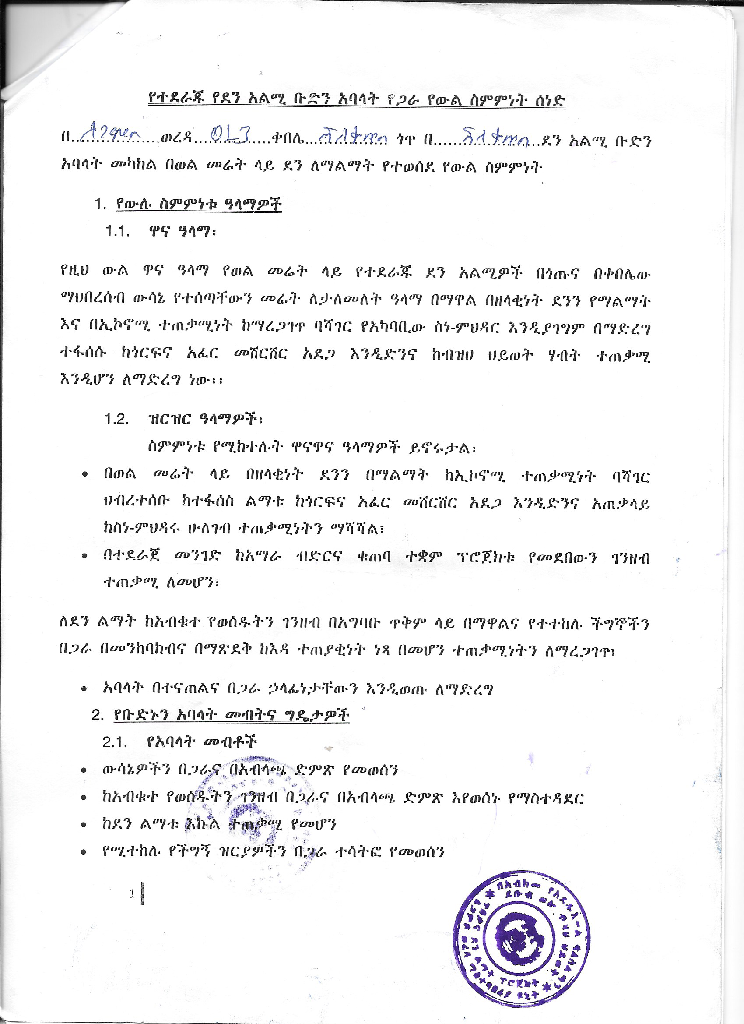 የተደራጁ የደን አልሚ ቡድን አባላት የጋራ የውል ስምምነት ሰነድ
በ.... ወረዳ.... ቀበሌ.... ጎጥ በ...... ደን አልሚ ቡድን
አባላት መካከል በወል መሬት ላይ ደን ለማልማት የተወሰደ የውል ስምምነት
1. የውሉ ስምምነቱ ዓላማዎች
1.1. ዋና ዓላማ፡
የዚህ ውል ዋና ዓላማ የወል መሬት ላይ የተደራጁ ደን አልሚዎች በጎጡና በቀበሌው
ማህበረሰብ ውሳኔ የተሰጣቸውን መሬት ለታለመለት ዓላማ በማዋል በዘላቂነት ደንን የማልማት
እና በኢኮኖሚ ተጠቃሚነት ከማረጋገጥ ባሻገር የአካባቢው ስነ-ምህዳር እንዲያገግም በማድረግ
ተፋሰሱ ከጎርፍና አፈር መሸርሸር አደጋ እንዲድንና ከብዝሀ ህይወት ሃብት ተጠቃሚ
እንዲሆን ለማድረግ ነው፡፡
1.2. ዝርዝር ዓላማዎች፡
ስምምነቱ የሚከተሉት ዋናዋና ዓላማዎች ይኖሩታል፡
• በወል መሬት ላይ በዘላቂነት ደንን በማልማት ከኢኮኖሚ ተጠቃሚነት ባሻገር
ህብረተሰቡ ከተፋሰስ ልማቱ ከጎርፍና አፈር መሸርሸር አደጋ እንዲድንና አጠቃላይ
ከስነ-ምህዳሩ ሁለገብ ተጠቃሚነትን ማሻሻል፤
• በተደራጀ መንገድ ከአማራ ብድርና ቁጠባ ተቋም ፕሮጀክቱ የመደበውን ገንዘብ
ተጠቃሚ ለመሆን፡
ለደን ልማት ከአብቁተ የወሰዱትን ገንዘብ በአግባቡ ጥቅም ላይ በማዋልና የተተከሉ ችግኞችን
በጋራ በመንከባከብና በማጽደቅ ከእዳ ተጠያቂነት ነጻ በመሆን ተጠቃሚነትን ለማረጋገጥ፤
• አባላት በተናጠልና በጋራ ኃላፊነታቸውን እንዲወጡ ለማድረግ
2. የቡድኑን አባላት መብትና ግዴታዎች
2.1. የአባላት መብቶች
• ውሳኔዎችን በጋራና በአብላጫ ድምጽ የመወሰን
• ከአብቁተ የወሰዱትን ገንዘብ በጋራና በአብላጫ ድምጽ እየወሰኑ የማስተዳደር
• ከደን ልማቱ እኩል ተጠቃሚ የመሆን
• የሚተከሉ የችግኝ ዝርያዎችን በጋራ ተሳትፎ የመወሰን
1